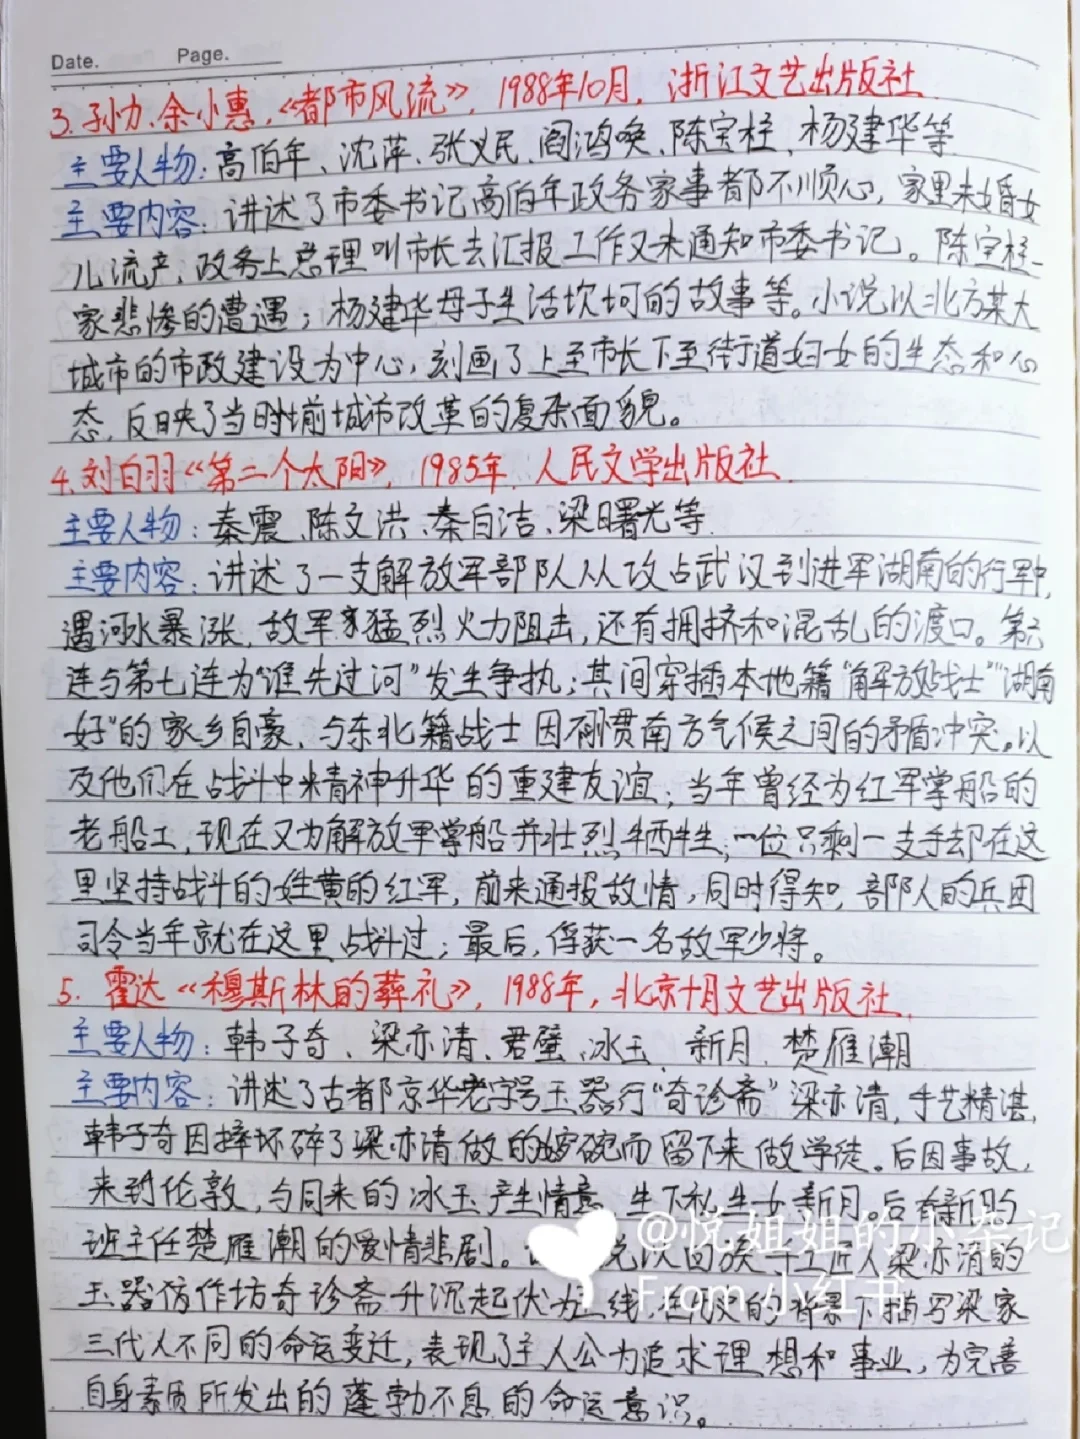 Date.    Page.
3. 孙力、余小惠,《都市风流》, 1988年10月, 浙江文艺出版社
主要人物: 高伯年、沈萍、张义民、阎鸿唤、陈宝柱、杨建华等
主要内容: 讲述了市委书记高伯年政务家事都不顺心, 家里未婚女
儿流产, 政务上总理叫市长去汇报工作又未通知市委书记。陈宝柱一
家悲惨的遭遇; 杨建华母子生活坎坷的故事等。小说以北方某大
城市的市政建设为中心, 刻画了上至市长下至街道妇女的生态和心
态, 反映了当时城市改革的复杂面貌。
4. 刘白羽《第二个太阳》, 1985年, 人民文学出版社
主要人物: 秦震、陈文洪、秦白洁、梁曙光等
主要内容: 讲述了一支解放军部队从攻占武汉到进军湖南的行军中,
遇河水暴涨, 敌军猛烈火力阻击, 还有拥挤和混乱的渡口。第六
连与第七连为“谁先过河”发生争执; 其间穿插本地籍“解放战士”“湖南
好”的家乡自豪, 与东北籍战士因不惯南方气候之间的矛盾冲突。以
及他们在战斗中精神升华的重建友谊; 当年曾经为红军掌船的
老船工, 现在又为解放军掌船并壮烈牺牲; 一位只剩一支手却在这
里坚持战斗的姓黄的红军, 前来通报敌情, 同时得知, 部队的兵团
司令当年就在这里战斗过; 最后, 俘获一名敌军少将。
5. 霍达《穆斯林的葬礼》, 1988年, 北京十月文艺出版社
主要人物: 韩子奇、梁亦清、君璧、冰玉、新月、楚雁潮
主要内容: 讲述了古都京华老字号玉器行“奇珍斋”梁亦清, 手艺精湛,
韩子奇因摔坏碎了梁亦清做的碗而留下来做学徒。后因事故,
来到伦敦, 与同来的冰玉产生情意, 生下私生女新月。后有新月与
班主任楚雁潮的爱情悲剧。说以回族手工匠人梁亦清的
玉器作坊奇珍斋升沉起伏为主线, 在的背景下描写梁家
三代人不同的命运变迁, 表现了主人公为追求理想和事业, 为完善
自身素质所发出的蓬勃不息的命运意识。
@悦姐姐的小杂记
From 小红书